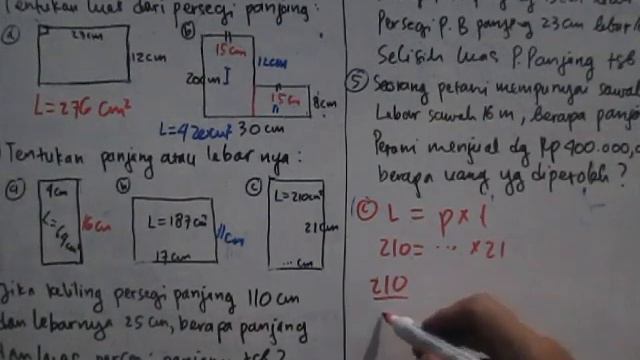 Tentukan luas dari persegi panjang:
a
12cm
L = 276 cm²
b
15cm
12cm
20cm I
15cm
8cm
L = 420cm² 30 cm
Tentukan panjang atau lebar nya:
a
4cm
16cm
b
L = 187cm²
11cm
17cm
c
L = 210cm²
21cm
... cm
Jika keliling persegi panjang 110 cm
dan lebarnya 25 cm, berapa panjang
Persegi P. B panjang 23 cm
Selisih luas P. Panjang tsb
5 Seorang petani mempunyai sawah
Lebar sawah 16 m, berapa
Petani menjual dg Rp 400.000,
berapa uang yg diperoleh?
c L = p x l
210 = ... x 21
210